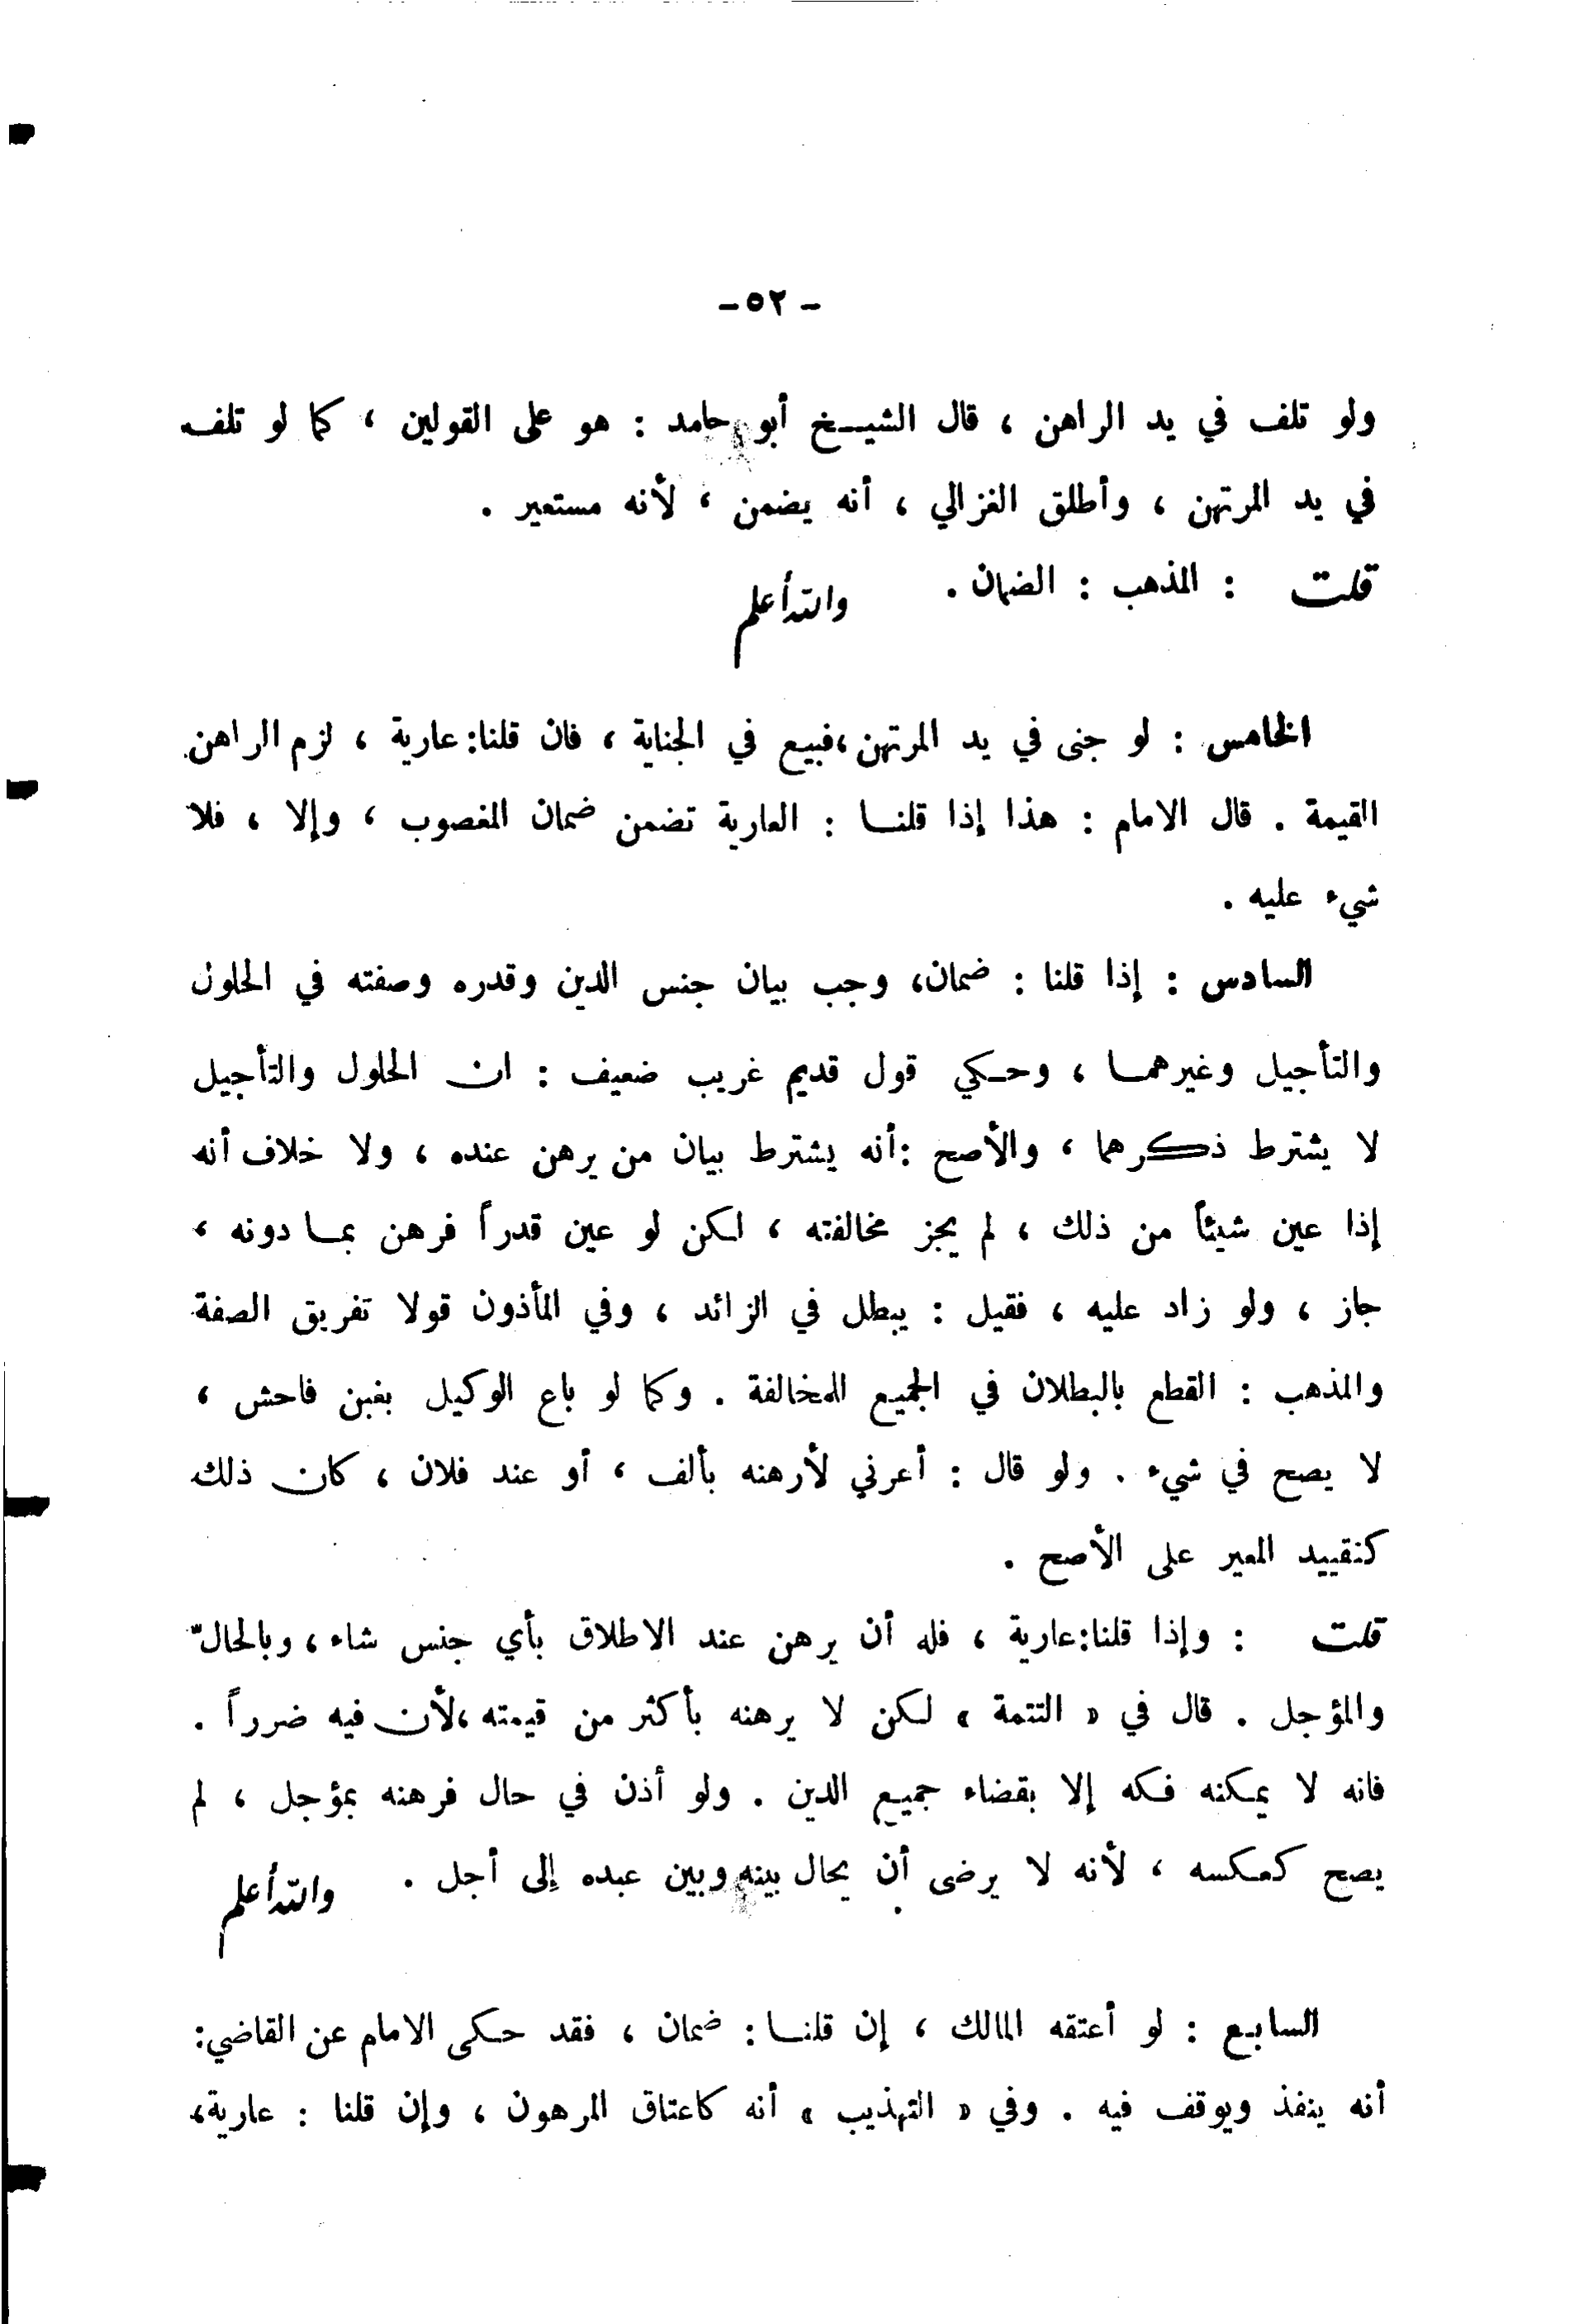 - ٥٢ -
ولو تلف في يد الراهن ، قال الشيخ أبو حامد : هو على القولين ، كما لو تلف
في يد المرتهن ، وأطلق الغزالي ، أنه يضمن ، لأنه مستعير .
قلت : المذهب : الضمان . والله أعلم
الخامس : لو جنى في يد المرتهن ،فبيع في الجناية ، فان قلنا:عارية ، لزم الراهن
القيمة . قال الامام : هذا إذا قلنا : العارية تضمن ضمان المغصوب ، وإلا ، فلا
شيء عليه .
السادس : إذا قلنا : ضمان، وجب بيان جنس الدين وقدره وصفته في الحلول
والتأجيل وغيرهما ، وحكي قول قديم غريب ضعيف : ان الحلول والتأجيل
لا يشترط ذكرهما ، والأصح :أنه يشترط بيان من يرهن عنده ، ولا خلاف أنه
إذا عين شيئاً من ذلك ، لم يجز مخالفته ، لكن لو عين قدراً فرهن بما دونه ،
جاز ، ولو زاد عليه ، فقيل : يبطل في الزائد ، وفي المأذون قولا تفريق الصفة
والمذهب : القطع بالبطلان في الجميع للمخالفة . وكما لو باع الوكيل بغبن فاحش ،
لا يصح في شيء . ولو قال : أعرني لأرهنه بألف ، أو عند فلان ، كان ذلك
كتقييد المعير على الأصح .
قلت : وإذا قلنا:عارية ، فله أن يرهن عند الاطلاق بأي جنس شاء ، وبالحالّ
والمؤجل . قال في « التتمة » لكن لا يرهنه بأكثر من قيمته ،لأن فيه ضرراً .
فانه لا يمكنه فكه إلا بقضاء جميع الدين . ولو أذن في حال فرهنه بمؤجل ، لم
يصح كعكسه ، لأنه لا يرضى أن يحال بينه وبين عبده إلى أجل . والله أعلم
السابع : لو أعتقه المالك ، إن قلنا : ضمان ، فقد حكى الامام عن القاضي:
أنه ينفذ ويوقف فيه . وفي « التهذيب » أنه كاعتاق المرهون ، وإن قلنا : عارية،